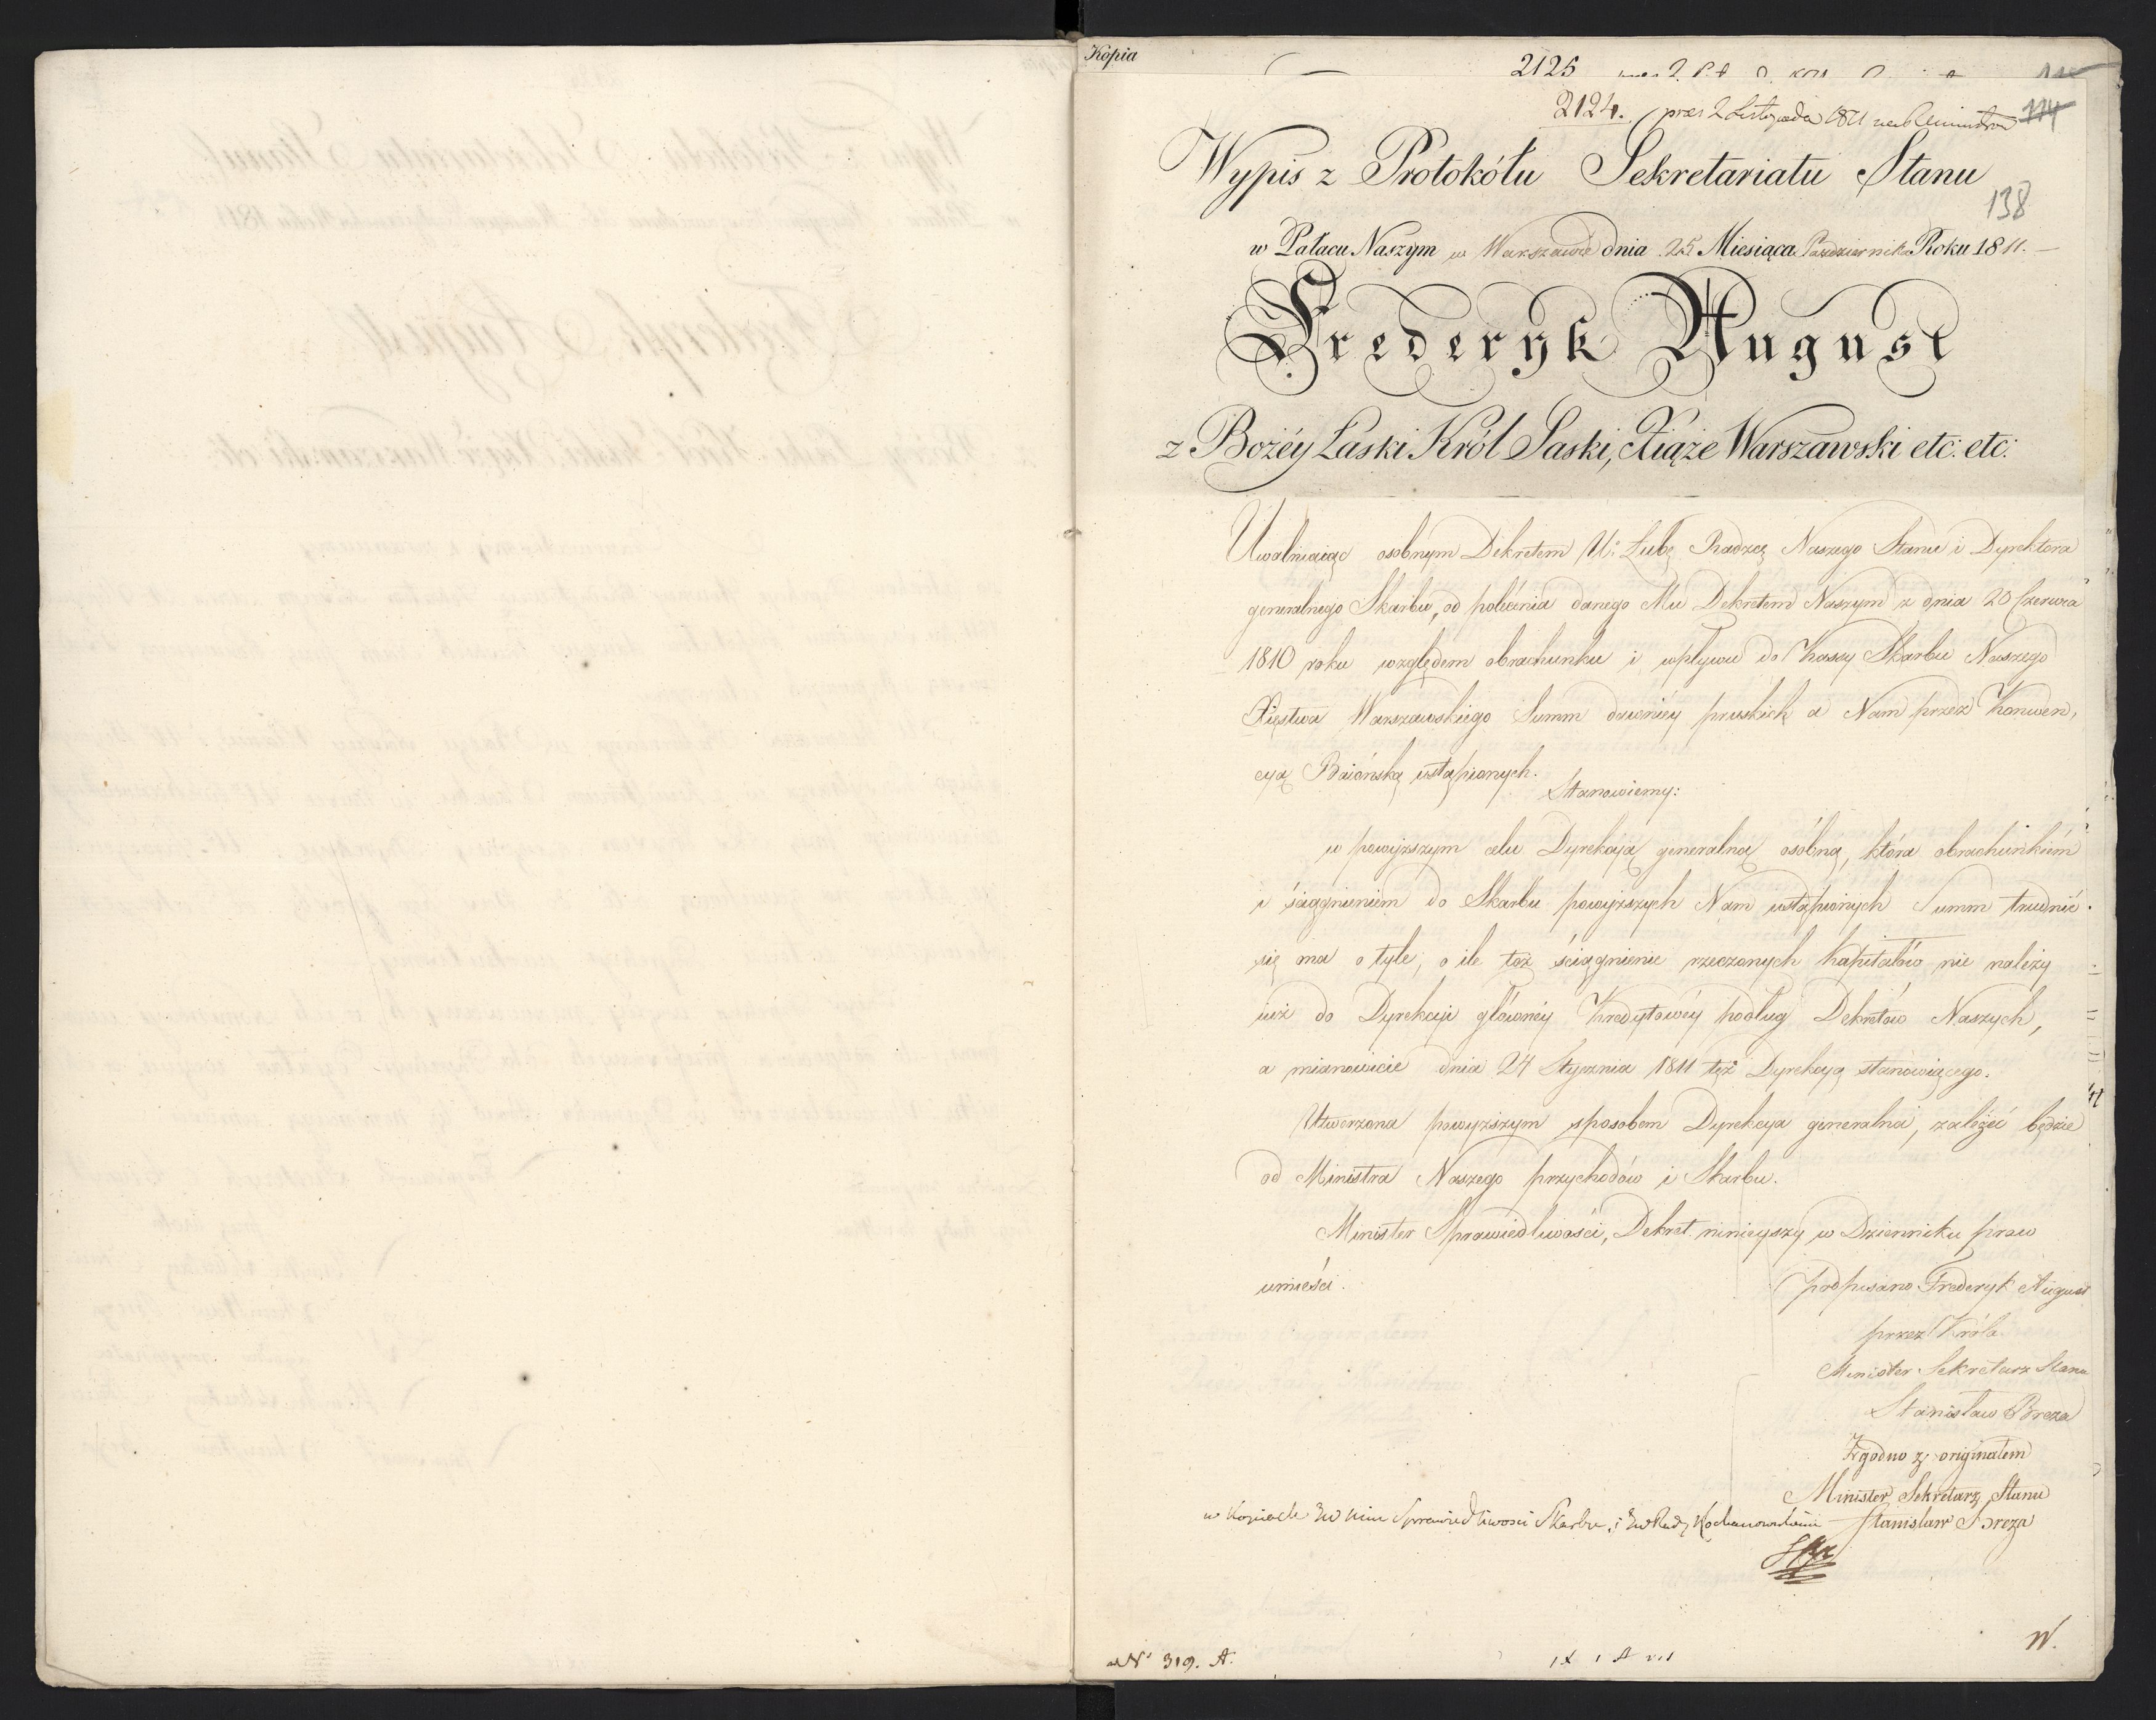 Kopia
2125
2124. pres 2 Listopada 1811 114
Wypis z Protokółu Sekretariatu Stanu
138
w Pałacu Naszym w Warszawie dnia 25 Miesiąca Pazdziernika Roku 1811.
Frederyk August
z Bożéy Łaski Król Saski, Xiąże Warszawski etc: etc:
Uwalniaiąc osobnym Dekretem Ur: Łubę Radzcę Naszego Stanu i Dyrektora
generalnego Skarbu, od polécenia danego Mu Dekretem Naszym z dnia 20 Czerwca
1810 roku względem obrachunku i wpływu do Kassy Skarbu Naszego
Xięstwa Warszawskiego Summ dawniéy pruskich a Nam przez Konwen,
cyą Baiońską ustąpionych.
Stanowiemy:
w powyższym celu Dyrekcyą generalną osóbną, która obrachunkiém
i ściągnieniem do Skarbu powyższych Nam ustąpionych Summ trudnić
się ma o tyle, o ile też ściągnienie rzeczonych kapitałów nie należy
iuż do Dyrekcyi głównéy Kredytowéy podług Dekretów Naszych,
a mianowicie dnia 24 Stycznia 1811 też Dyrekcyą stanowiącego.
Utworzona powyższym sposobem Dyrekcya generalna, zależéć będzie
od Ministra Naszego przychodów i Skarbu.
Minister Sprawiedliwości, Dekret ninieyszy w Dzienniku praw
umieści.
podpisano Frederyk August
przez Króla
Minister Sekretarz Stanu
Stanisław Breza
Zgodno z originałem
Minister Sekretarz Stanu
w kopiach Sprawiedliwosci Skarbu, i Stanisław Breza
N° 319. A.
W.